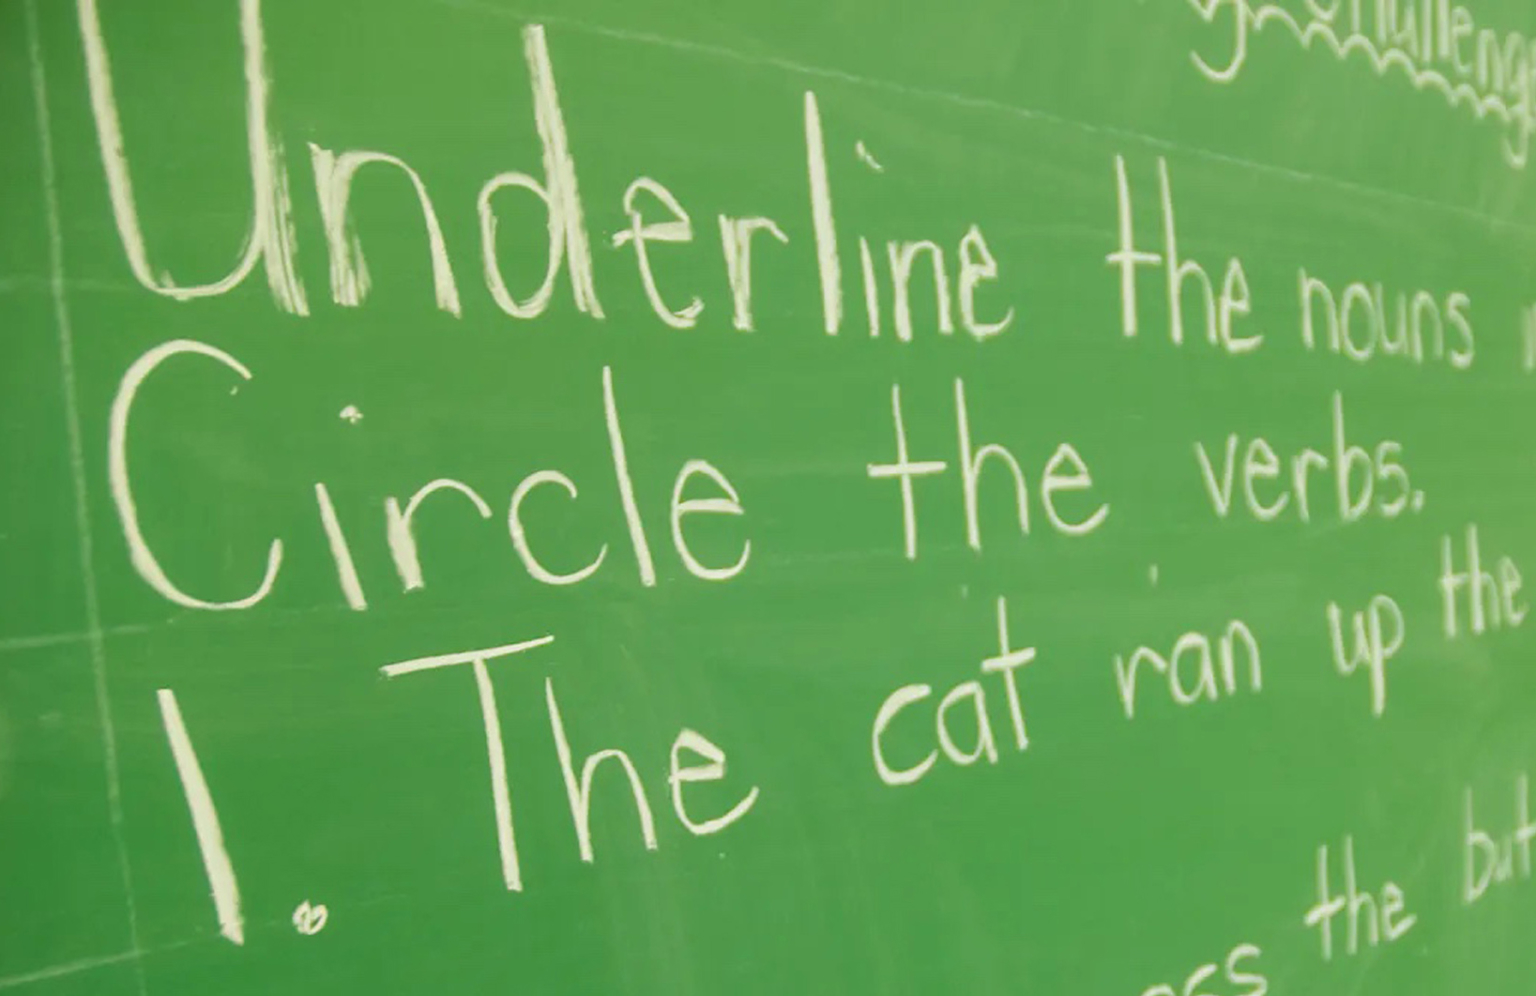 Underline the nouns
Circle the verbs.
1. The cat ran up the
the